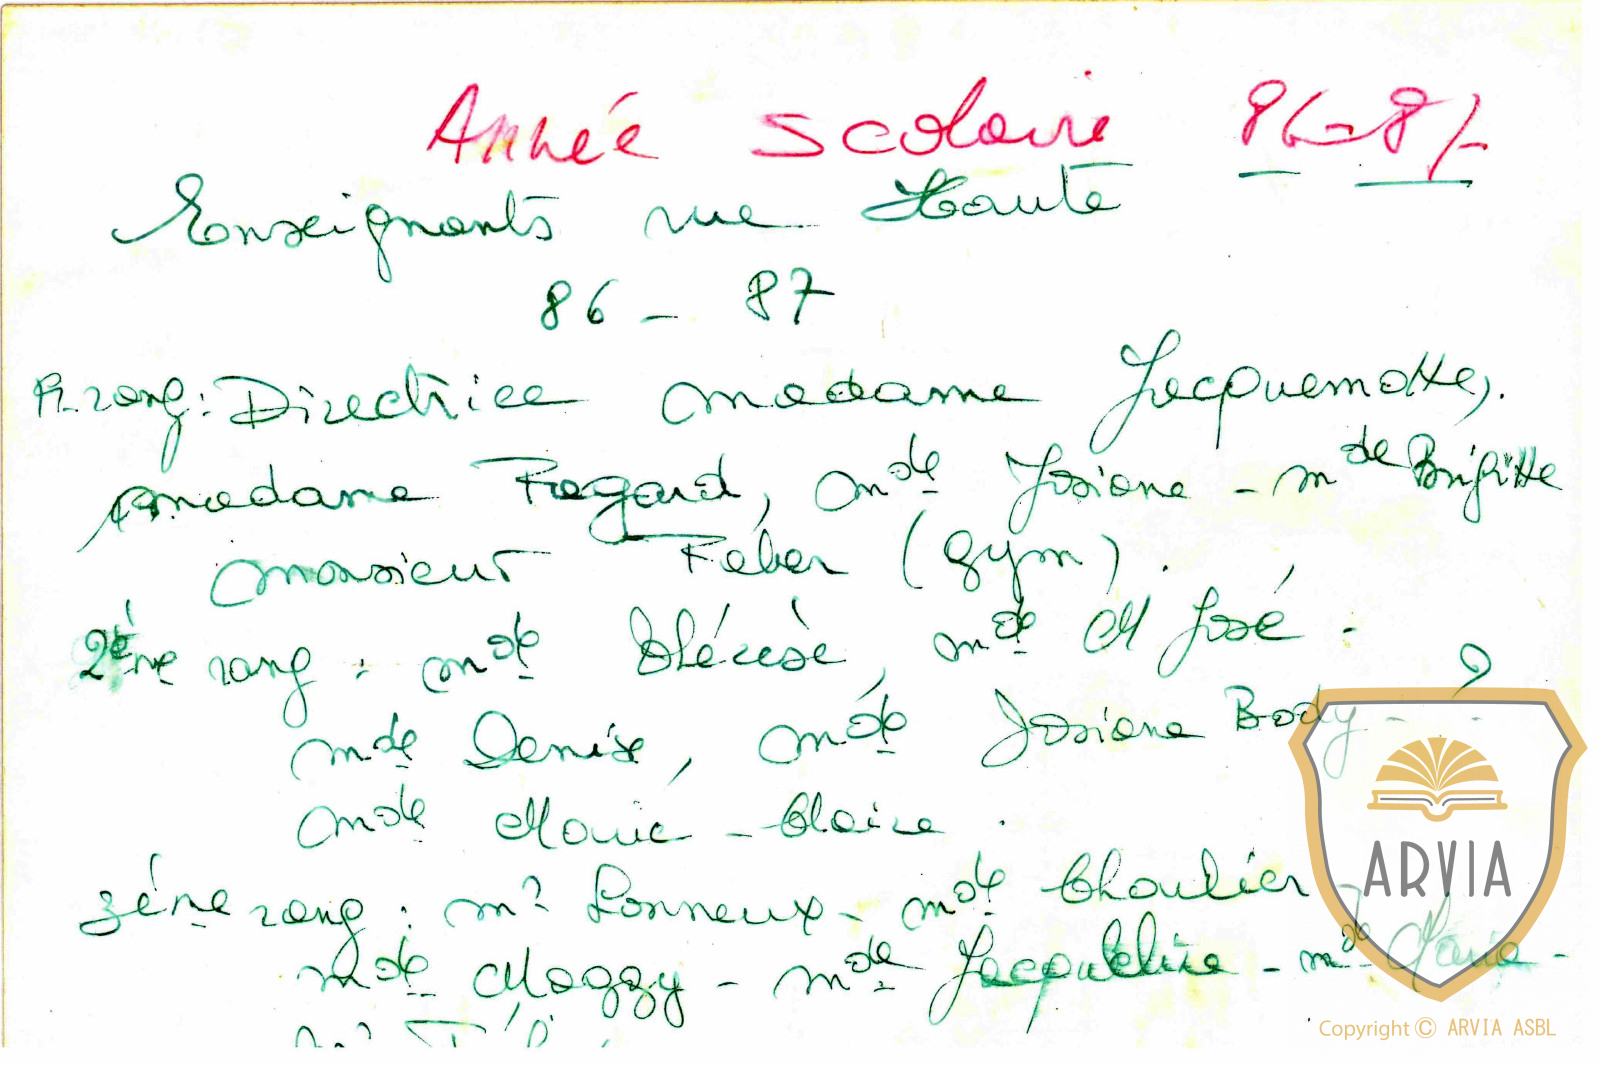 Année scolaire 86-87
Enseignants rue Haute
86 - 87
Pr. rang : Directrice madame Jacquemotte,.
madame Fregard, mde Josiane - mde Brigitte
monsieur Feber (gym).
2ème rang : mde Thérèse, mde M José.
mde Denise, mde Josiane Body - ?
mde Marie - Claire.
3ème rang : mr Lonneux - mde Choulier
mde Maggy - mde Jacqueline - mde Marie -
ARVIA
Copyright © ARVIA ASBL